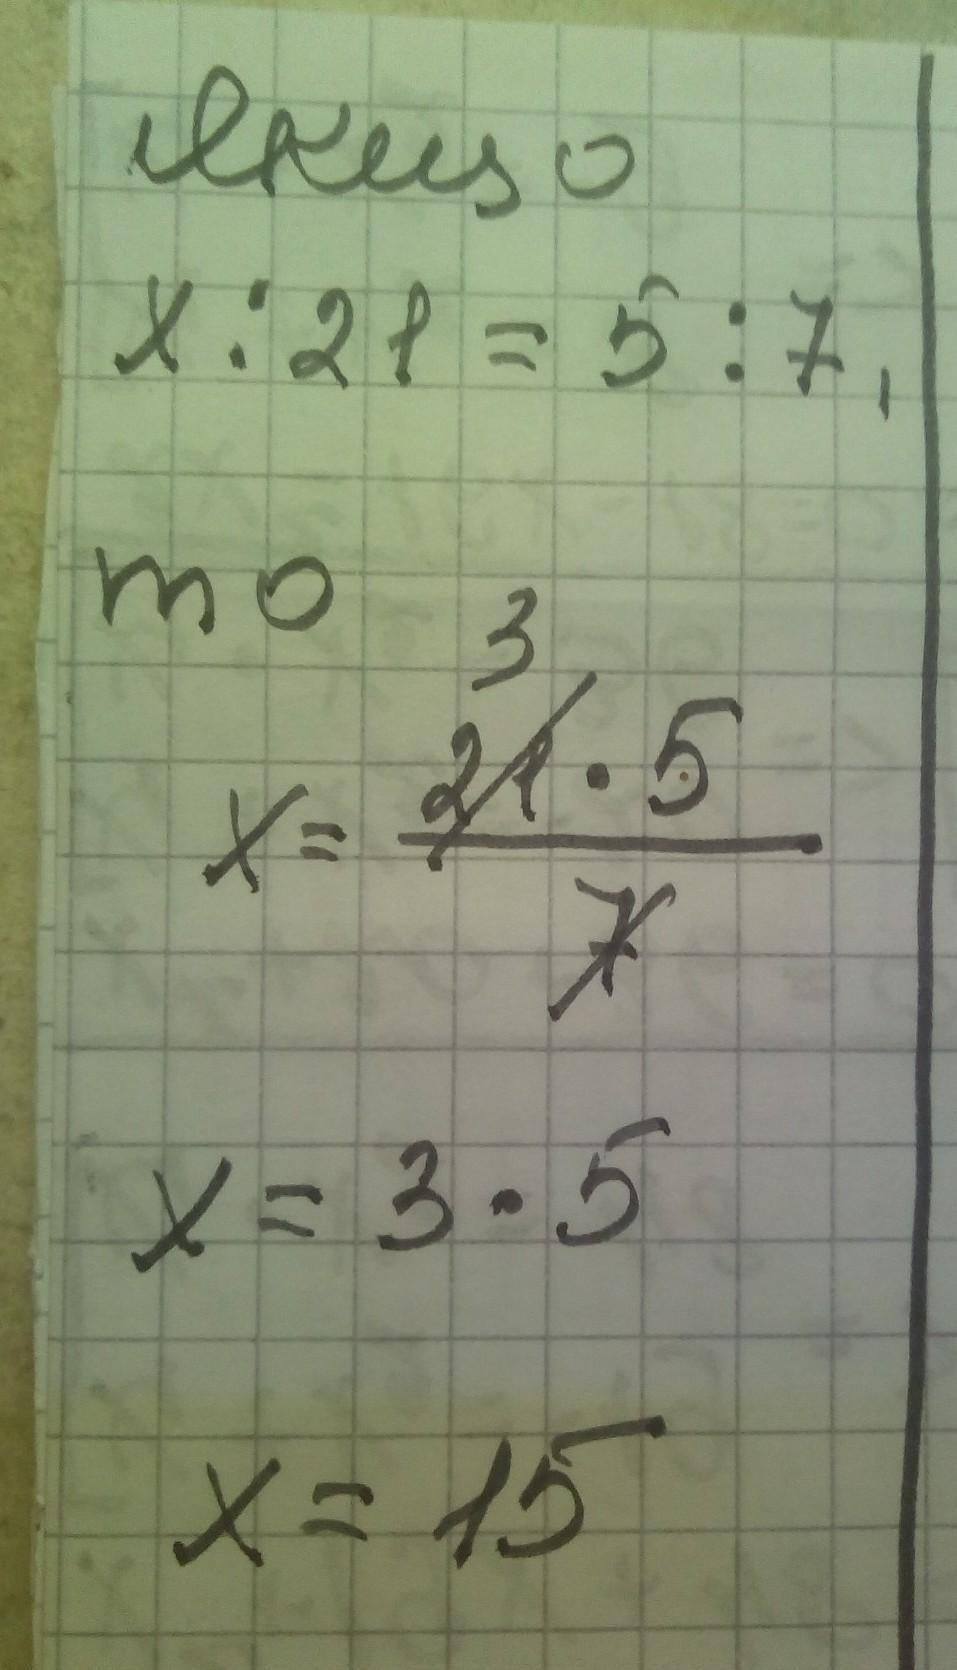 Якщо
x : 21 = 5 : 7,
то
3
x = 21 · 5
7
x = 3 · 5
x = 15